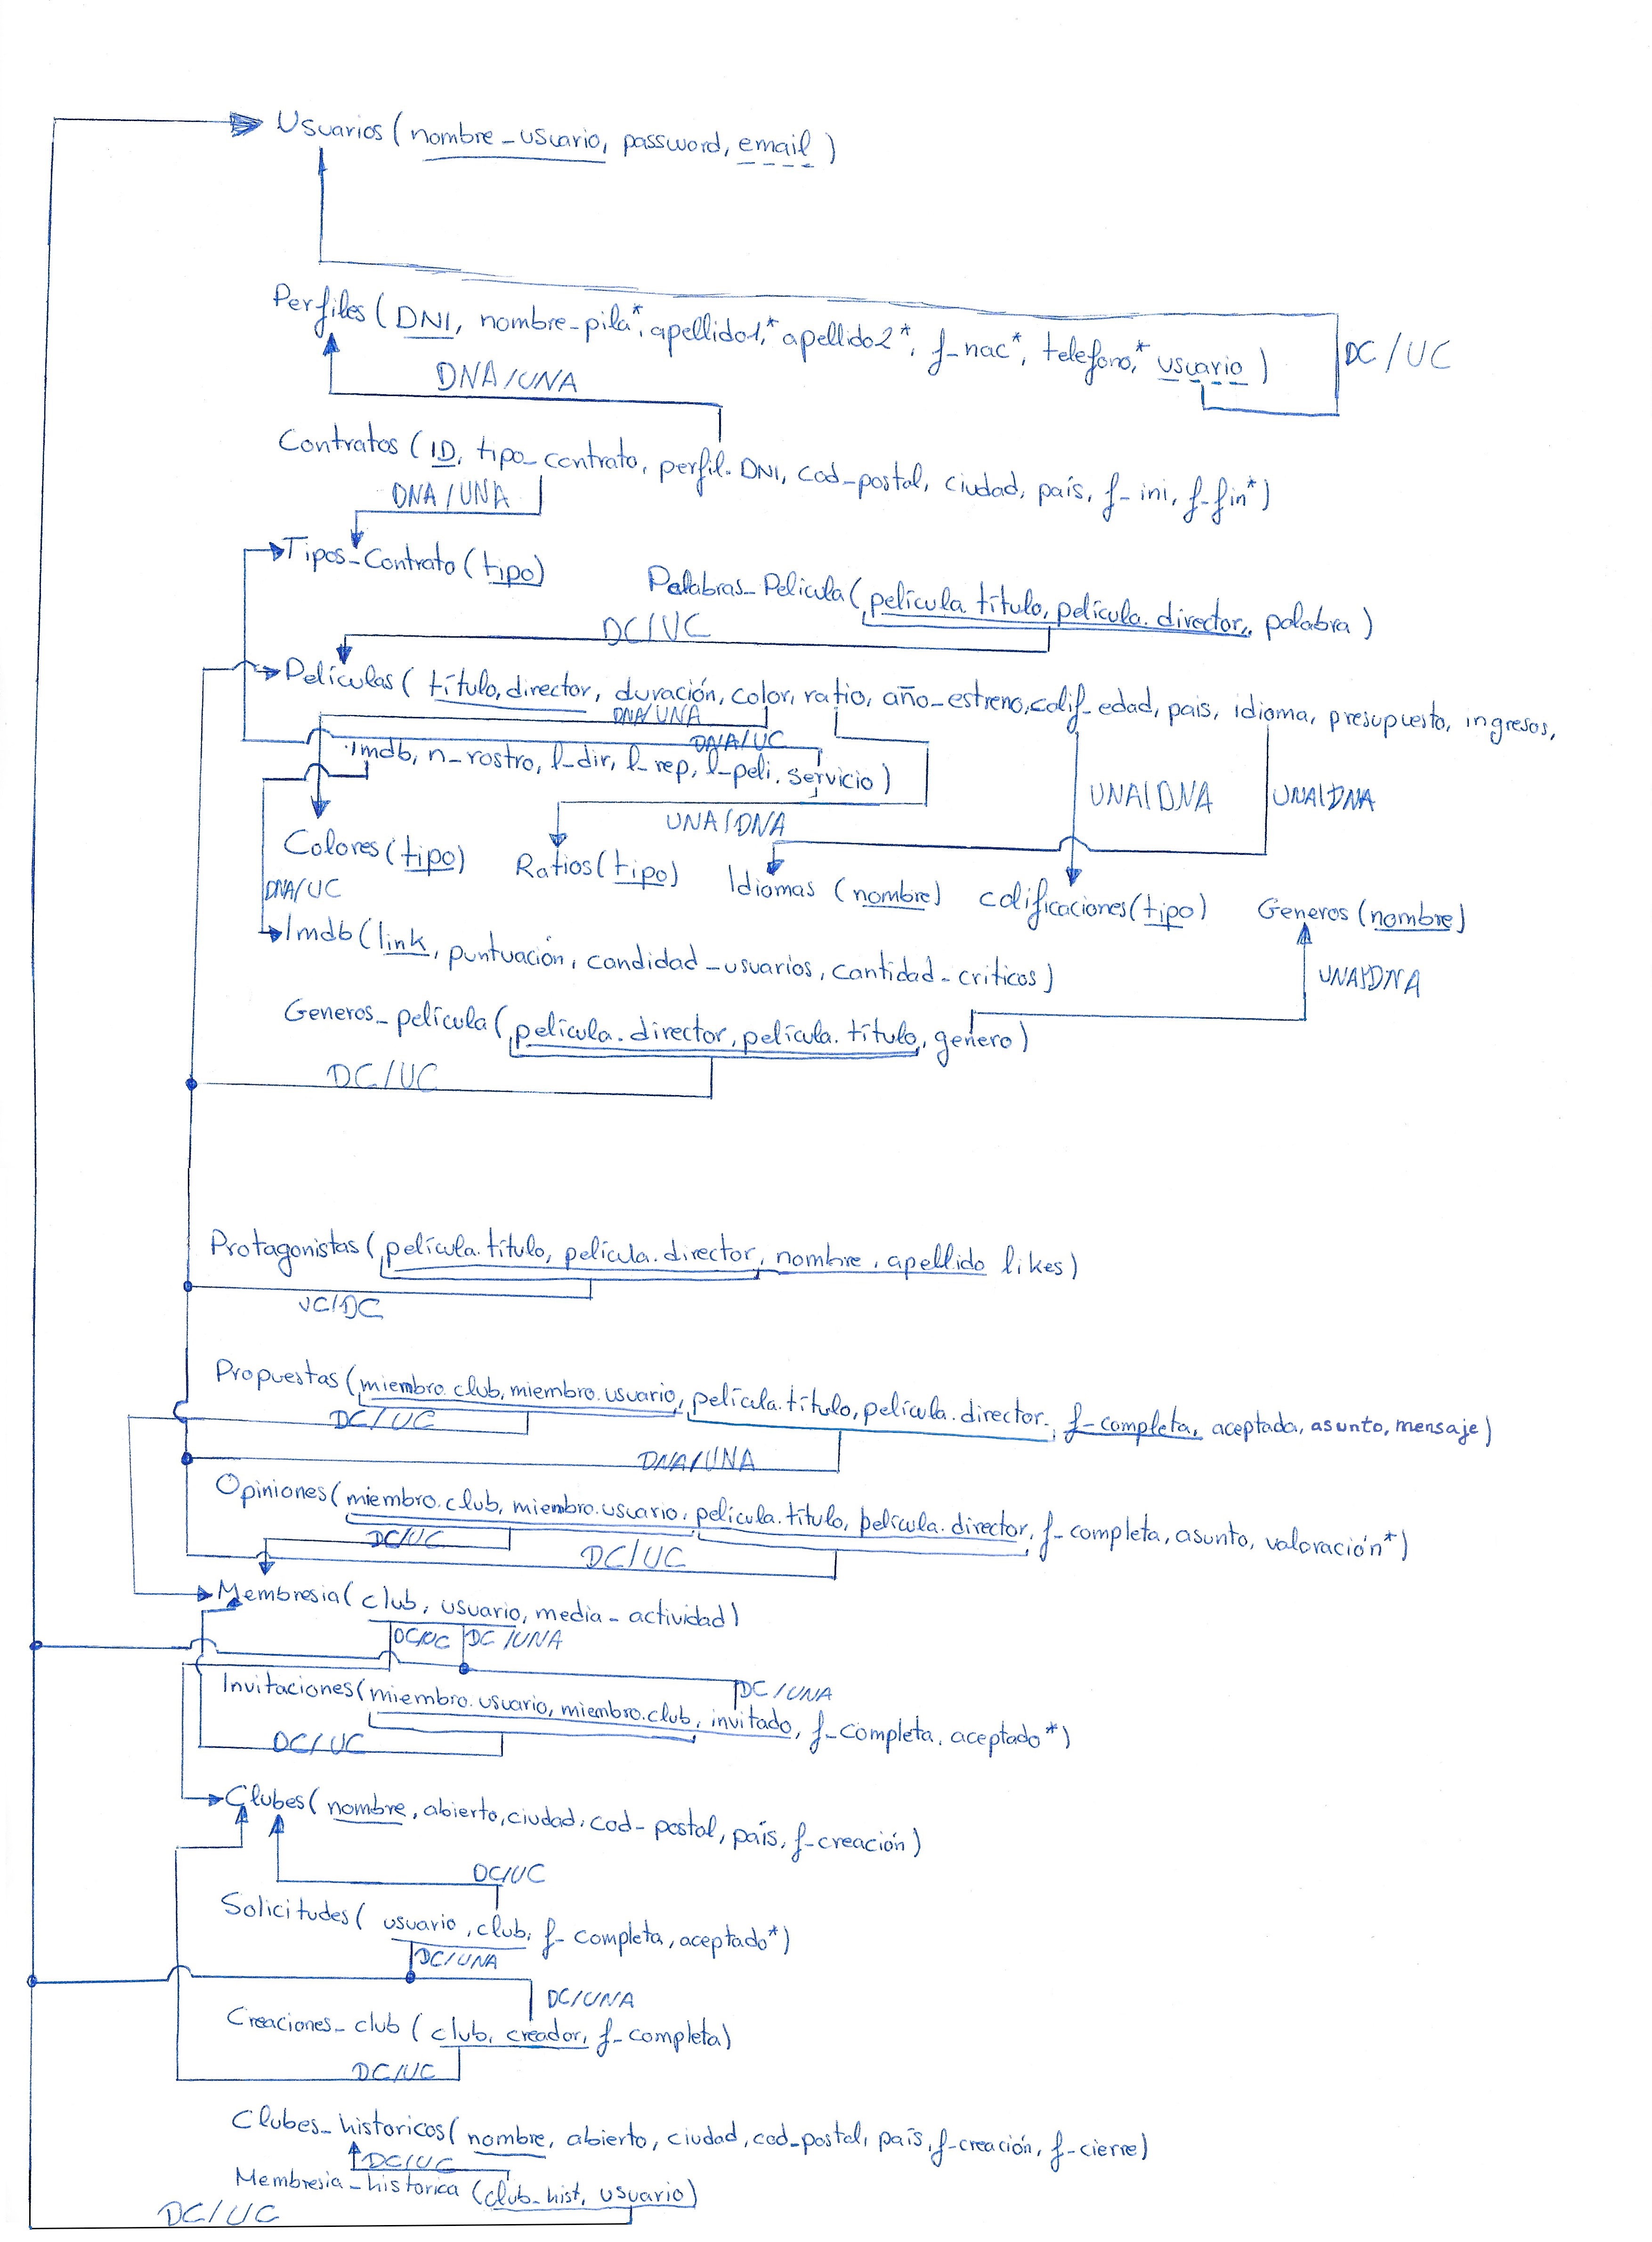 Usuarios (nombre_usuario, password, email)
Perfiles (DNI, nombre-pila*, apellido1,* apellido2*, f-nac*, telefono,* usuario)
DC/UC
DNA/UNA
Contratos (ID, tipo_contrato, perfil.DNI, cod-postal, ciudad, país, f-ini, f-fin*)
DNA/UNA
Tipos_Contrato (tipo)
Palabras_Pelicula (película.título, película.director, palabra)
DC/UC
Películas (título, director, duración, color, ratio, año-estreno, calif_edad, pais, idioma, presupuesto, ingresos,
DNA/UNA
DNA/UC
imdb, n_rostro, l-dir, l-rep, l-peli, servicio)
UNA/DNA
UNA/DNA
UNA/DNA
Colores (tipo) Ratios (tipo) Idiomas (nombre) calificaciones (tipo) Generos (nombre)
DNA/UC
Imdb (link, puntuación, candidad-usuarios, cantidad-criticos)
UNA/DNA
Generos_película (película.director, película.título, genero)
DC/UC
Protagonistas (película.título, película.director, nombre, apellido likes)
UC/DC
Propuestas (miembro.club, miembro.usuario, película.título, película.director, f-completa, aceptada, asunto, mensaje)
DC/UC
DNA/UNA
Opiniones (miembro.club, miembro.usuario, película.título, película.director, f-completa, asunto, valoración*)
DC/UC
DC/UC
Membresia (club, usuario, media-actividad)
DC/UC DC/UNA
DC/UNA
Invitaciones (miembro.usuario, miembro.club, invitado, f-completa, aceptado*)
DC/UC
Clubes (nombre, abierto, ciudad, cod-postal, país, f-creación)
DC/UC
Solicitudes (usuario, club, f-completa, aceptado*)
DC/UNA
DC/UNA
Creaciones_club (club, creador, f-completa)
DC/UC
Clubes_historicos (nombre, abierto, ciudad, cod-postal, país, f-creación, f-cierre)
DC/UC
Membresia-historica (club-hist, usuario)
DC/UC